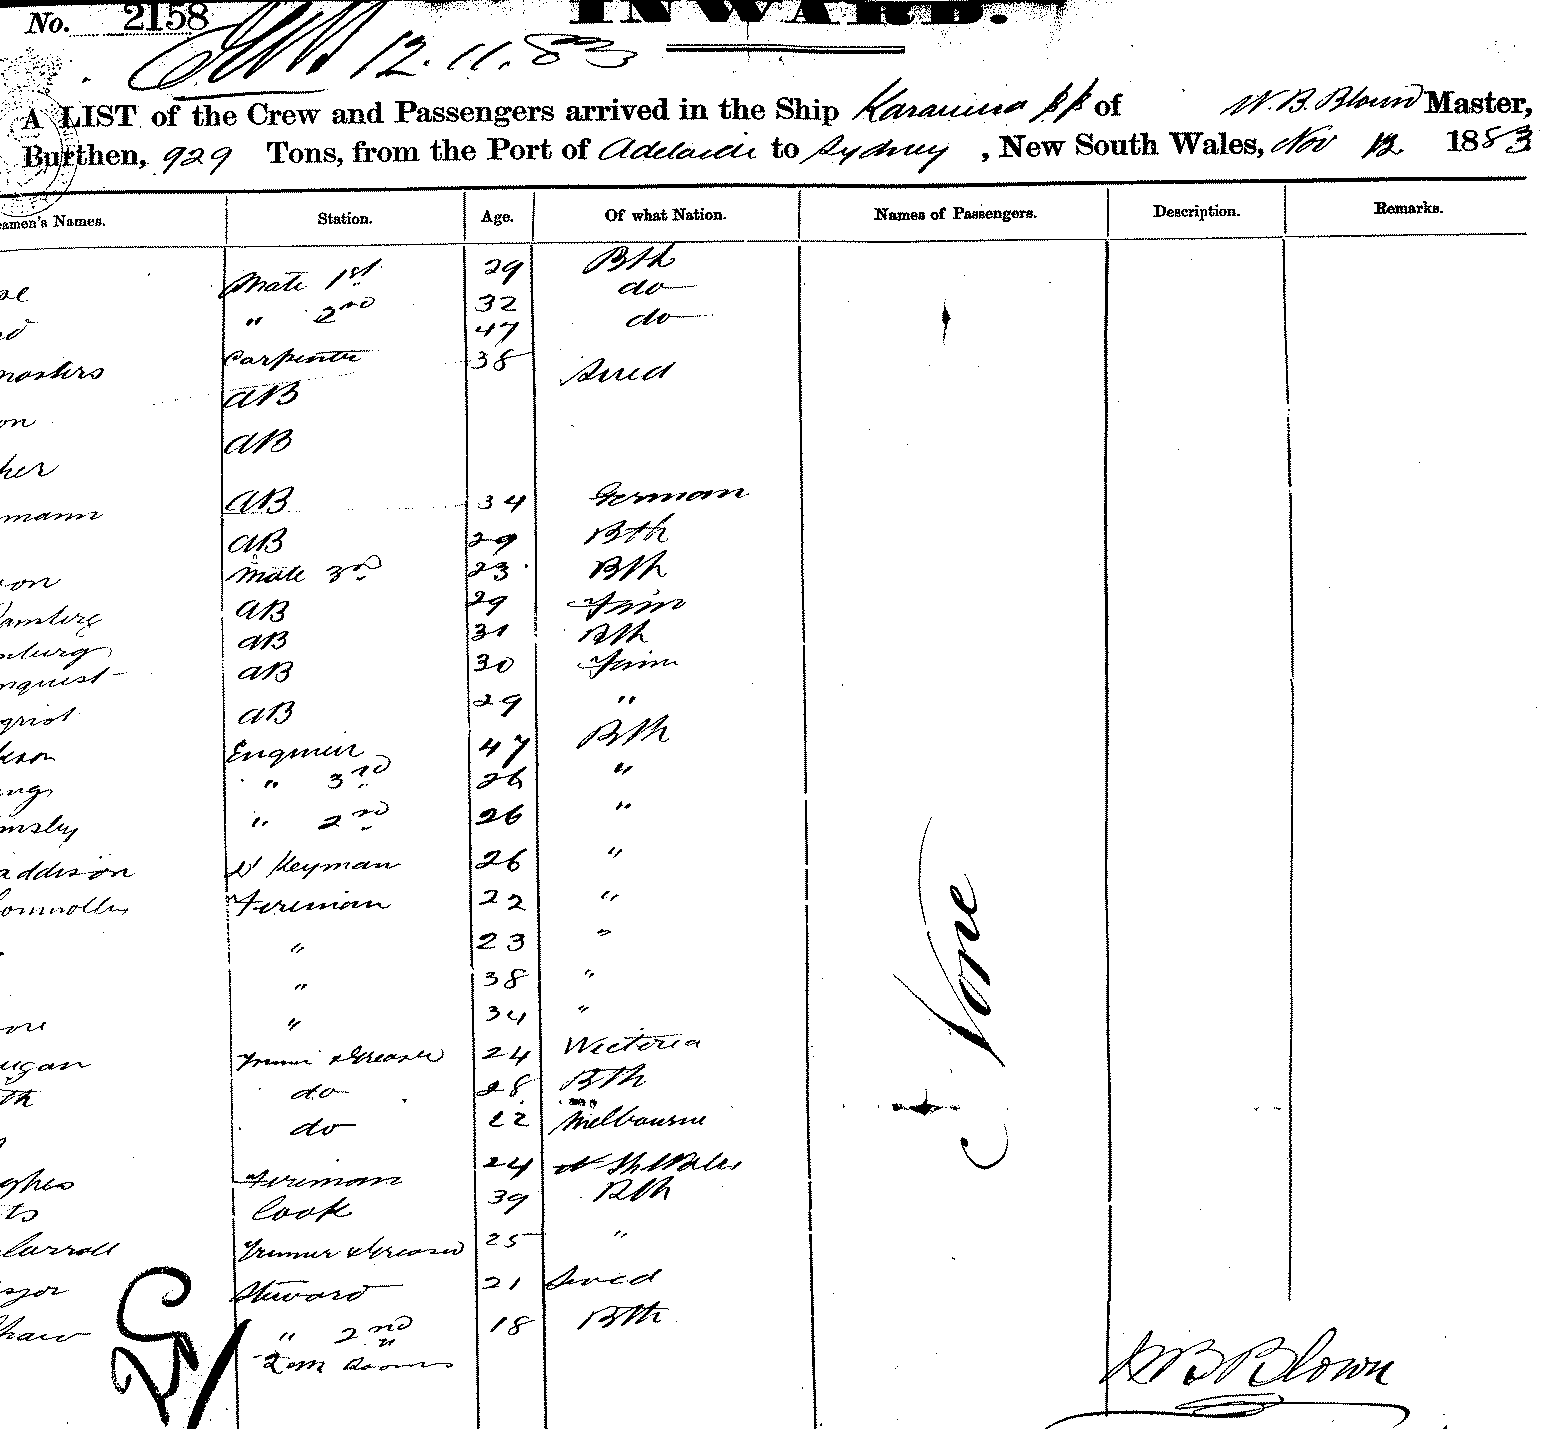 No. 2158
INWARD.
12.11.83
A LIST of the Crew and Passengers arrived in the Ship of W. B. Blown Master,
Burthen, 929 Tons, from the Port of Adelaide to Sydney, New South Wales, Nov 12 1883
amen's Names. Station. Age. Of what Nation. Names of Passengers. Description. Remarks.
Mate 1st 29 Bth
" 2nd 32 do
47 do
masters Carpenter 38 Swed
on AB
her AB
mann AB 34 German
AB 29 Bth
on Mate 3rd 23 Bth
AB 29 Finn
burg AB 31 Bth
nquist AB 30 Finn
AB 29 "
kson Engineer 47 Bth
ng " 3rd 26 "
msley " 2nd 26 "
addison D Keyman 26 "
Connolly Fireman 22 "
" 23 "
" 38 "
ore " 34 "
ugan Trimmer & Greaser 24 Wictoria
th do 28 Bth
do 22 Melbourne
ghes Fireman 24 N S Wales
ts Cook 39 Bth
Carroll Trimmer & Greaser 25 "
jor Steward 21 Swed
Shaw " 2nd 18 Bth
None
W B Blown